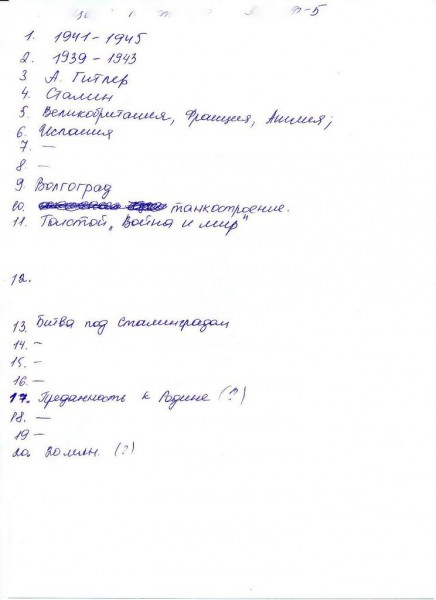 П-5
1. 1941-1945
2. 1939-1943
3. А. Гитлер
4. Сталин
5. Великобритания, Франция, Англия;
6. Испания
7. —
8. —
9. Волгоград
10. танкостроение.
11. Толстой „Война и мир"
12.
13. Битва под Сталинградом
14. –
15. –
16. —
17. Преданность к Родине (?)
18. —
19 —
20 20 млн. (?)